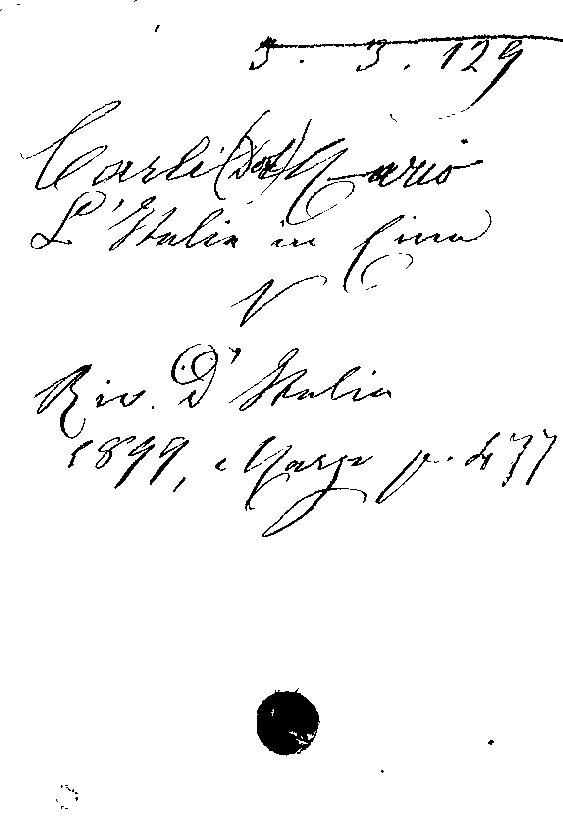 3. 3. 129
Carli (Dot) Mario
L'Italia in Cina
V
Riv. D'Italia
1899, Marzo p. 477